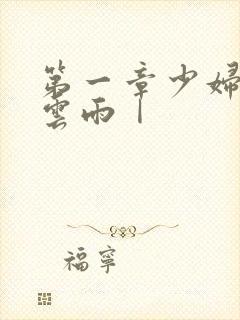 第一章少婦
雲雨｜
福寧